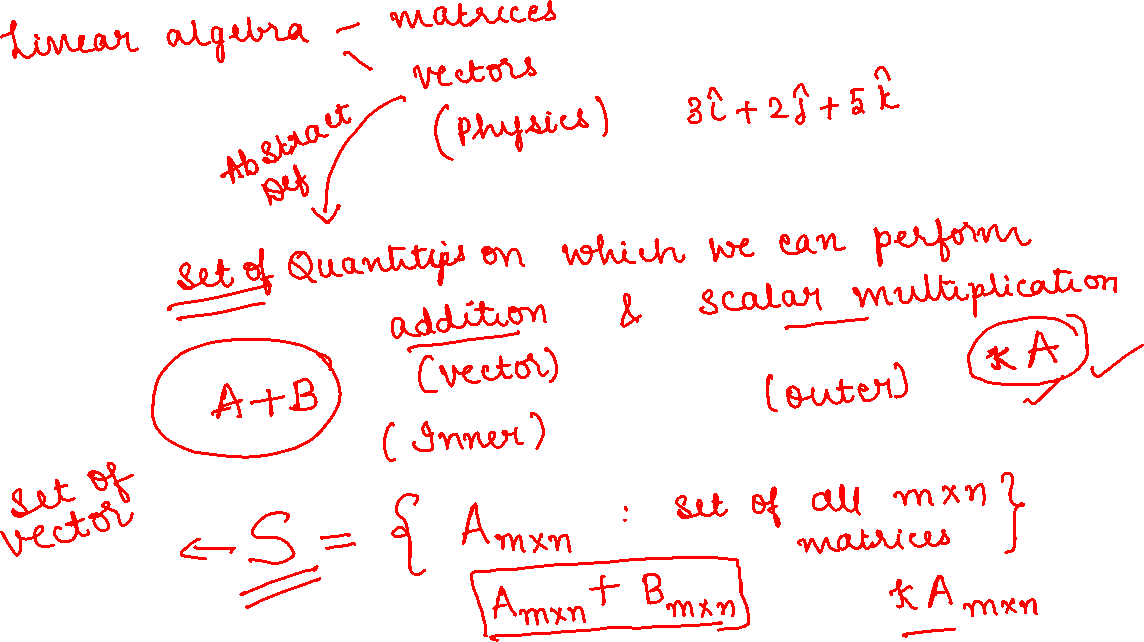 Linear algebra - matrices
vectors
(Physics) 3î + 2ĵ + 5k̂
Abstract
Def
Set of Quantities on which we can perform
addition & scalar multiplication
(vector) (outer) kA
A+B
(Inner)
set of
vector
← S = { A_{m×n} : set of all m×n
matrices }
A_{m×n} + B_{m×n} kA_{m×n}